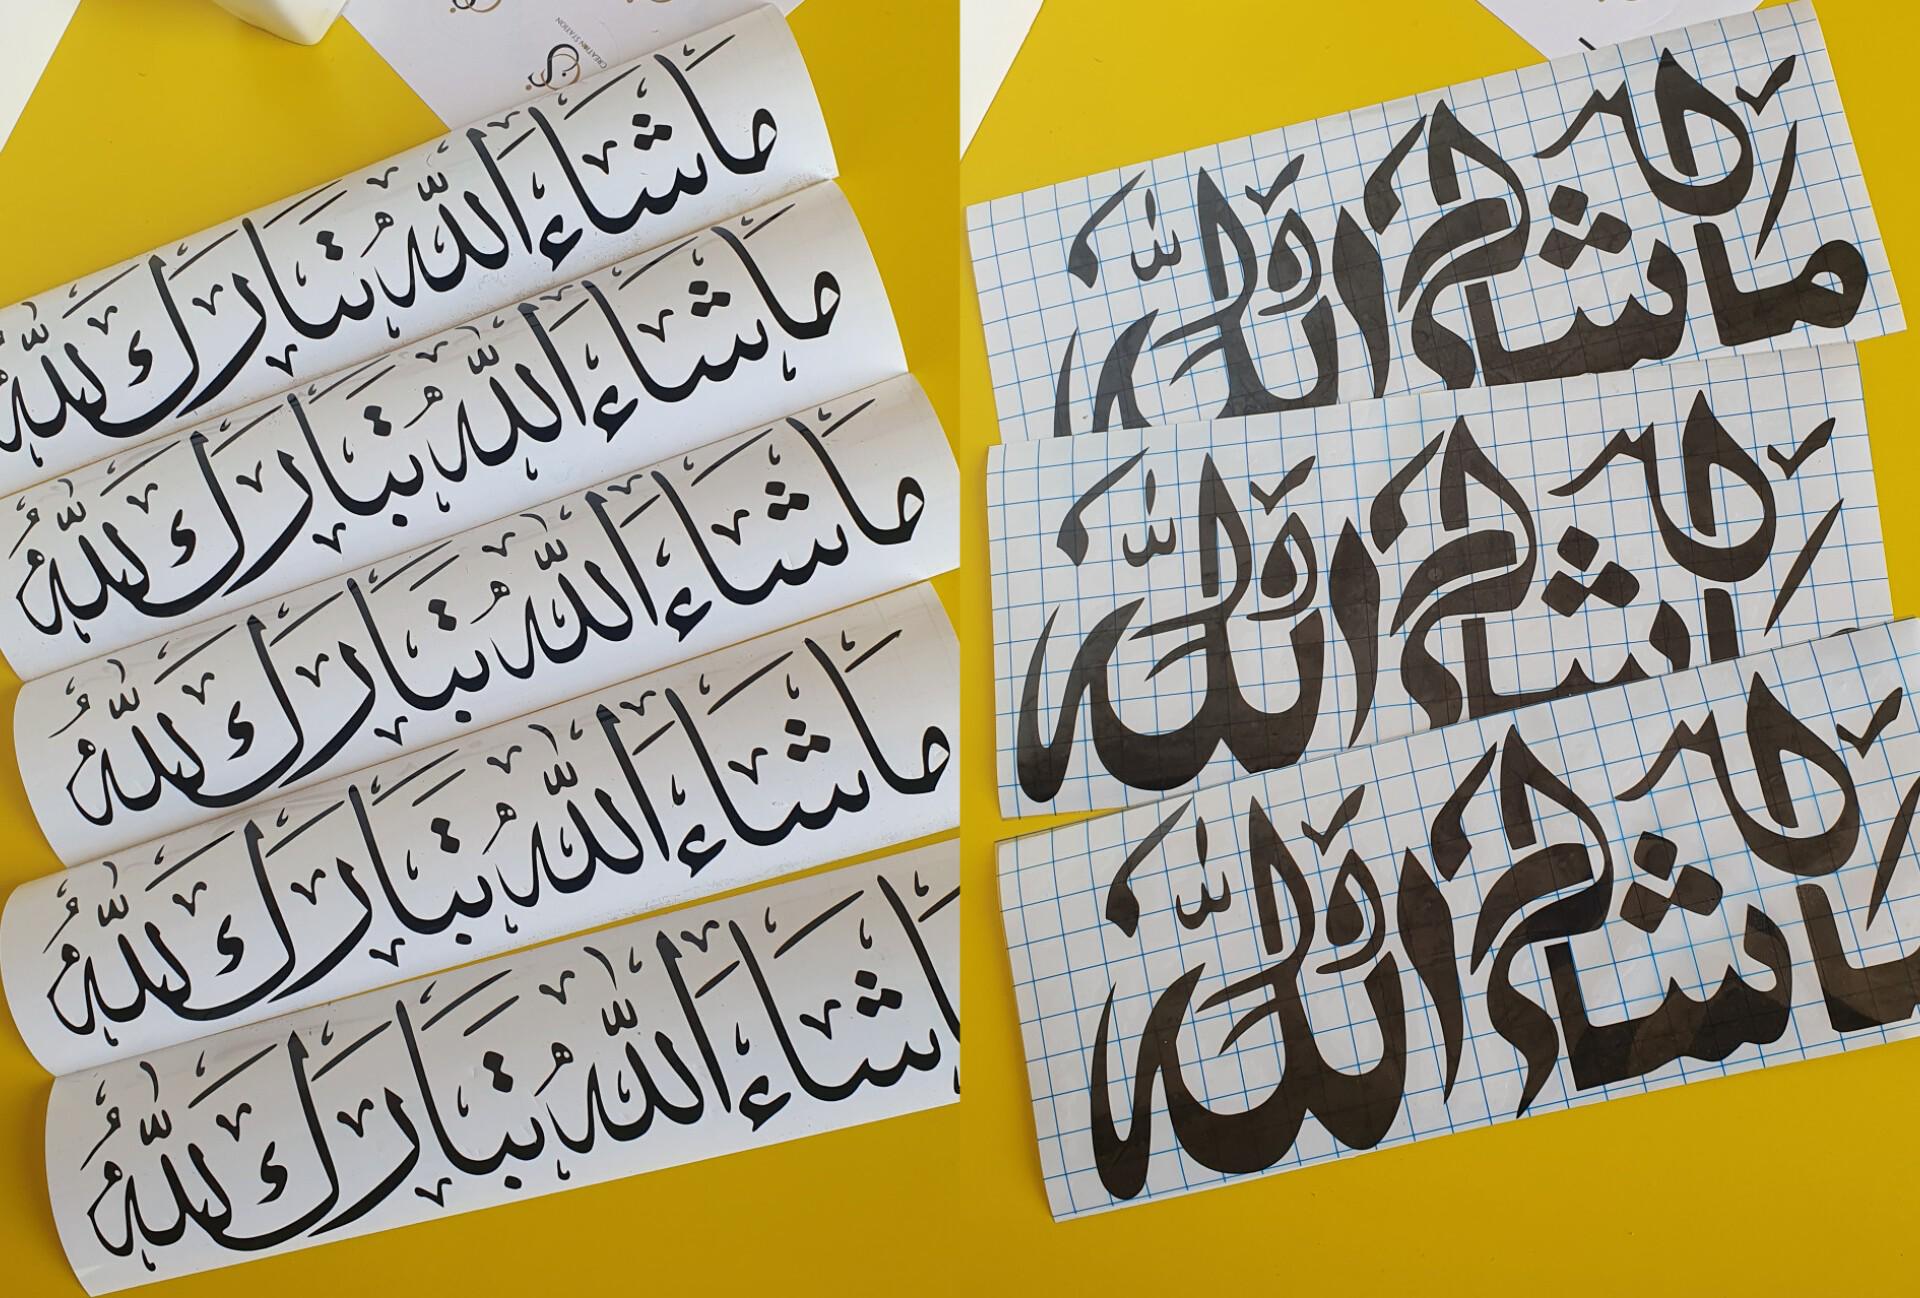 CREATION STATION
ما شاء الله تبارك الله
ما شاء الله تبارك الله
ما شاء الله تبارك الله
ما شاء الله تبارك الله
ما شاء الله تبارك الله
ما شاء الله
ما شاء الله
ما شاء الله